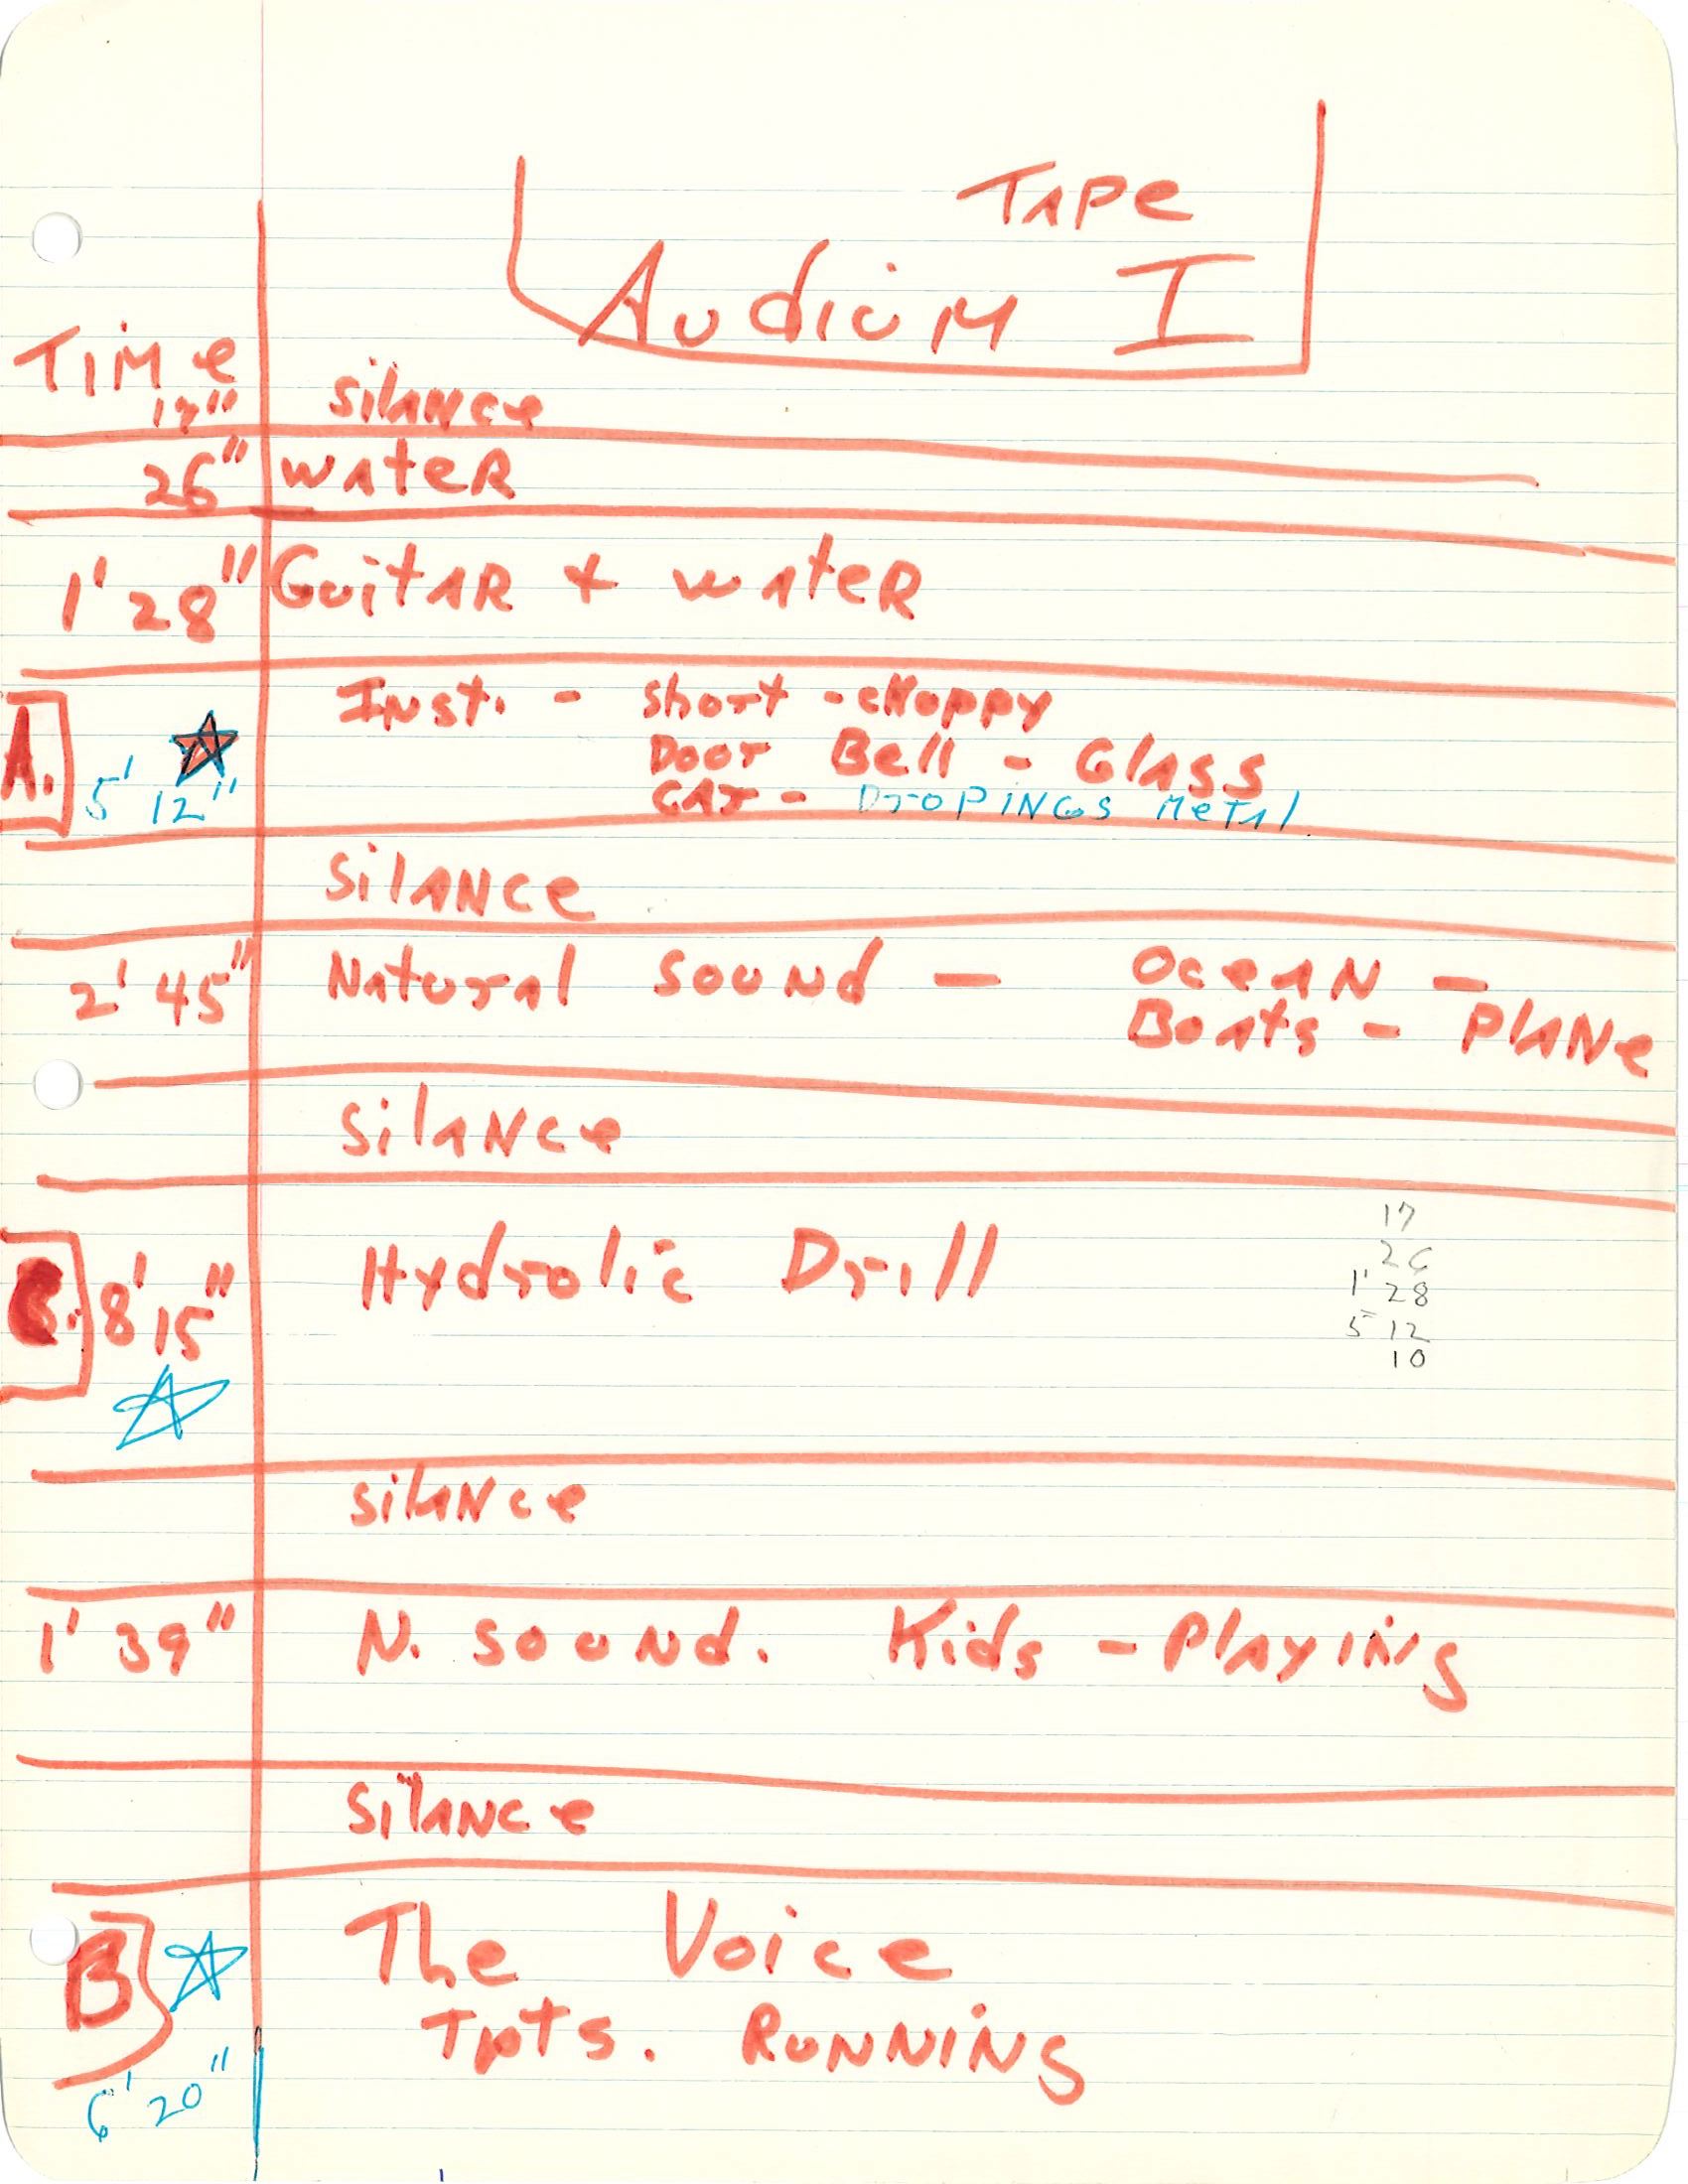 Tape
Audium I
Time
17" silance
26" water
1' 28" Guitar + water
A. Inst. - short - choppy
Door Bell - Glass
5' 12" Car - Dropings Metal
silance
2' 45" Natural sound — Ocean -
Boats - Plane
silance
17
26
1' 28
5 12
10
C. 8' 15" Hydrolic Drill
silance
1' 39" N. sound. Kids - Playing
silance
B The Voice
Tpts. Running
6' 20"